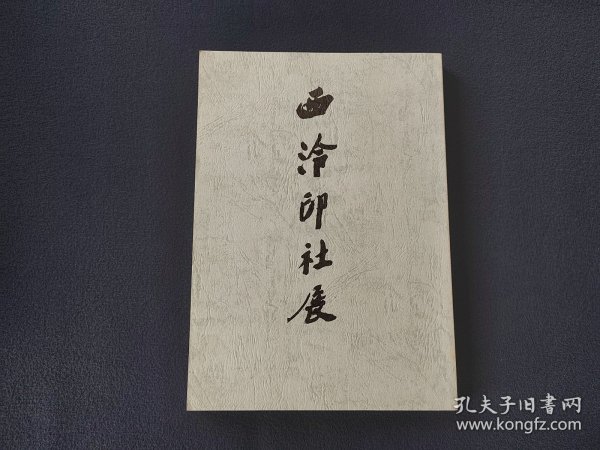 西泠印社展
孔夫子旧書网
www.kongfz.com